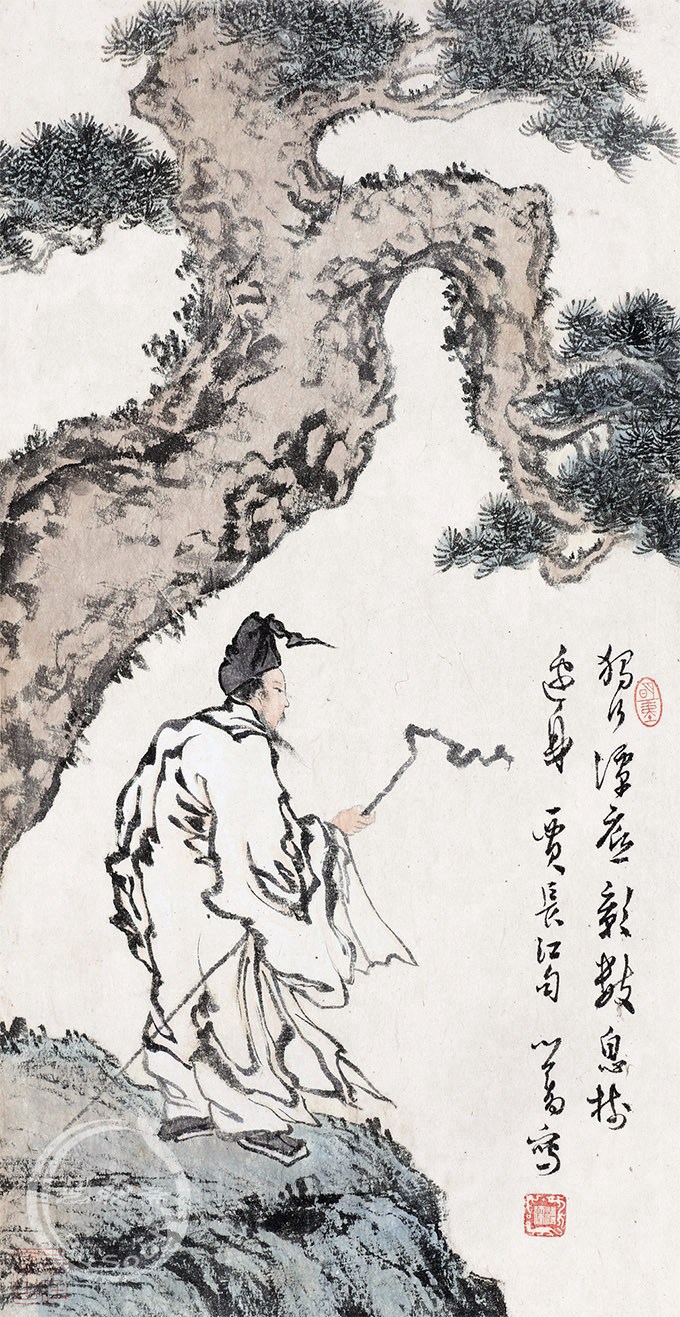 獨行潭底影數息樹
邊身 賈長江句 心畬寫